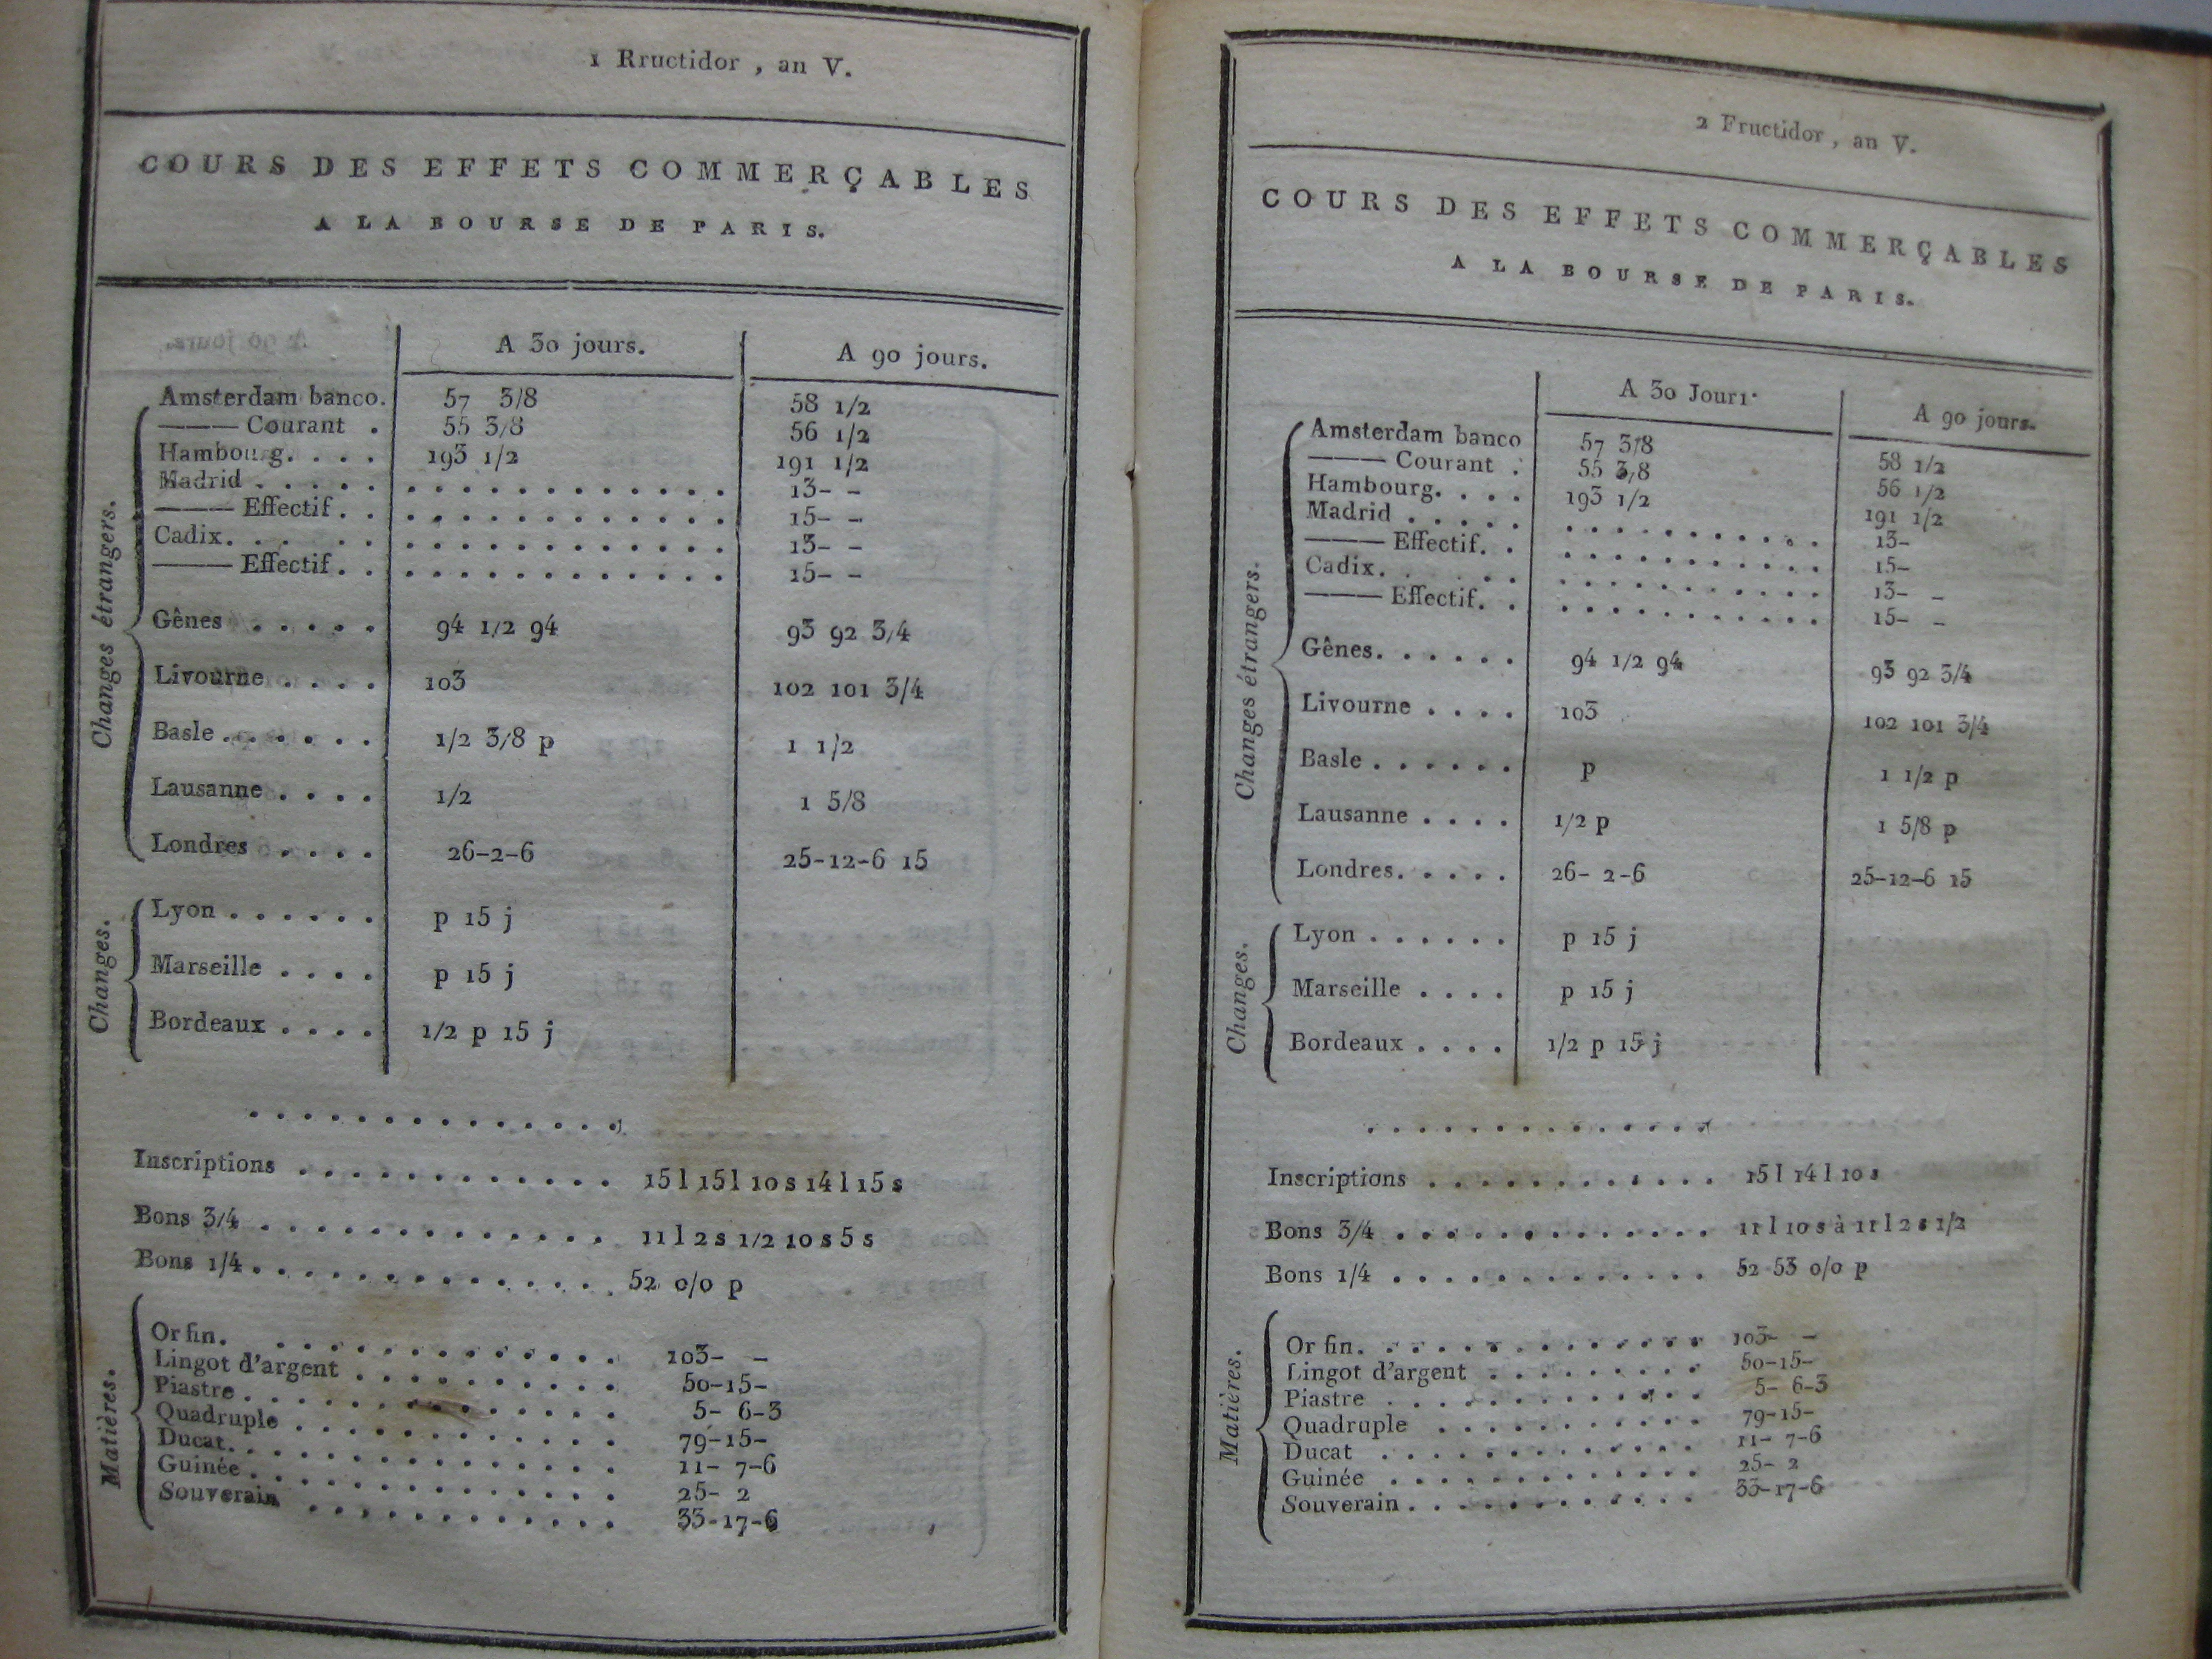 1 Rructidor , an V.
COURS DES EFFETS COMMERÇABLES
A LA BOURSE DE PARIS.
A 30 jours. A 90 jours.
Changes étrangers.
Amsterdam banco. 57 3/8 58 1/2
——— Courant . 55 3/8 56 1/2
Hambourg. . . . 193 1/2 191 1/2
Madrid . . . . . . . . . . . . . . . . . 13- -
——— Effectif. . . . . . . . . . . . . . 15- -
Cadix. . . . . . . . . . . . . . . . . 13- -
——— Effectif. . . . . . . . . . . . . . 15- -
Gênes . . . . . 94 1/2 94 93 92 3/4
Livourne . . . . 103 102 101 3/4
Basle . . . . . . 1/2 3/8 p 1 1/2
Lausanne . . . . 1/2 1 5/8
Londres . . . . 26-2-6 25-12-6 15
Changes.
Lyon . . . . . . p 15 j
Marseille . . . . p 15 j
Bordeaux . . . . 1/2 p 15 j
. . . . . . . . . . . . . .
Inscriptions . . . . . . . . . . . . 15 l 15 l 10 s 14 l 15 s
Bons 3/4 . . . . . . . . . . . . . 11 l 2 s 1/2 10 s 5 s
Bons 1/4. . . . . . . . . . . . . . 52 0/0 p
Matières.
Or fin. . . . . . . . . . . . . . 103- -
Lingot d'argent . . . . . . . . . . 50-15-
Piastre . . . . . . . . . . . . . . 5- 6-3
Quadruple . . . . . . . . . . . . 79-15-
Ducat. . . . . . . . . . . . . . . 11- 7-6
Guinée . . . . . . . . . . . . . . 25- 2
Souverain . . . . . . . . . . . . 33-17-6
2 Fructidor , an V.
COURS DES EFFETS COMMERÇABLES
A LA BOURSE DE PARIS.
A 30 Jour1· A 90 jours.
Changes étrangers.
Amsterdam banco 57 3/8 58 1/2
——— Courant . 55 3/8 56 1/2
Hambourg. . . . 193 1/2 191 1/2
Madrid . . . . . . . . . . . . . . . 13-
——— Effectif. . . . . . . . . . . . 15-
Cadix. . . . . . . . . . . . . . . 13- -
——— Effectif. . . . . . . . . . . . 15- -
Gênes. . . . . . 94 1/2 94 93 92 3/4
Livourne . . . . 103 102 101 3/4
Basle . . . . . . p 1 1/2 p
Lausanne . . . . 1/2 p 1 5/8 p
Londres. . . . . 26- 2-6 25-12-6 15
Changes.
Lyon . . . . . . p 15 j
Marseille . . . . p 15 j
Bordeaux . . . . 1/2 p 15 j
. . . . . . . . . . . . . .
Inscriptions . . . . . . . . . . . . 15 l 14 l 10 s
Bons 3/4 . . . . . . . . . . . . . 11 l 10 s à 11 l 2 s 1/2
Bons 1/4 . . . . . . . . . . . . . 52 53 0/0 p
Matières.
Or fin. . . . . . . . . . . . . . 103- -
Lingot d'argent . . . . . . . . . 50-15-
Piastre . . . . . . . . . . . . . 5- 6-3
Quadruple . . . . . . . . . . . 79-15-
Ducat . . . . . . . . . . . . . 11- 7-6
Guinée . . . . . . . . . . . . . 25- 2
Souverain . . . . . . . . . . . . 33-17-6